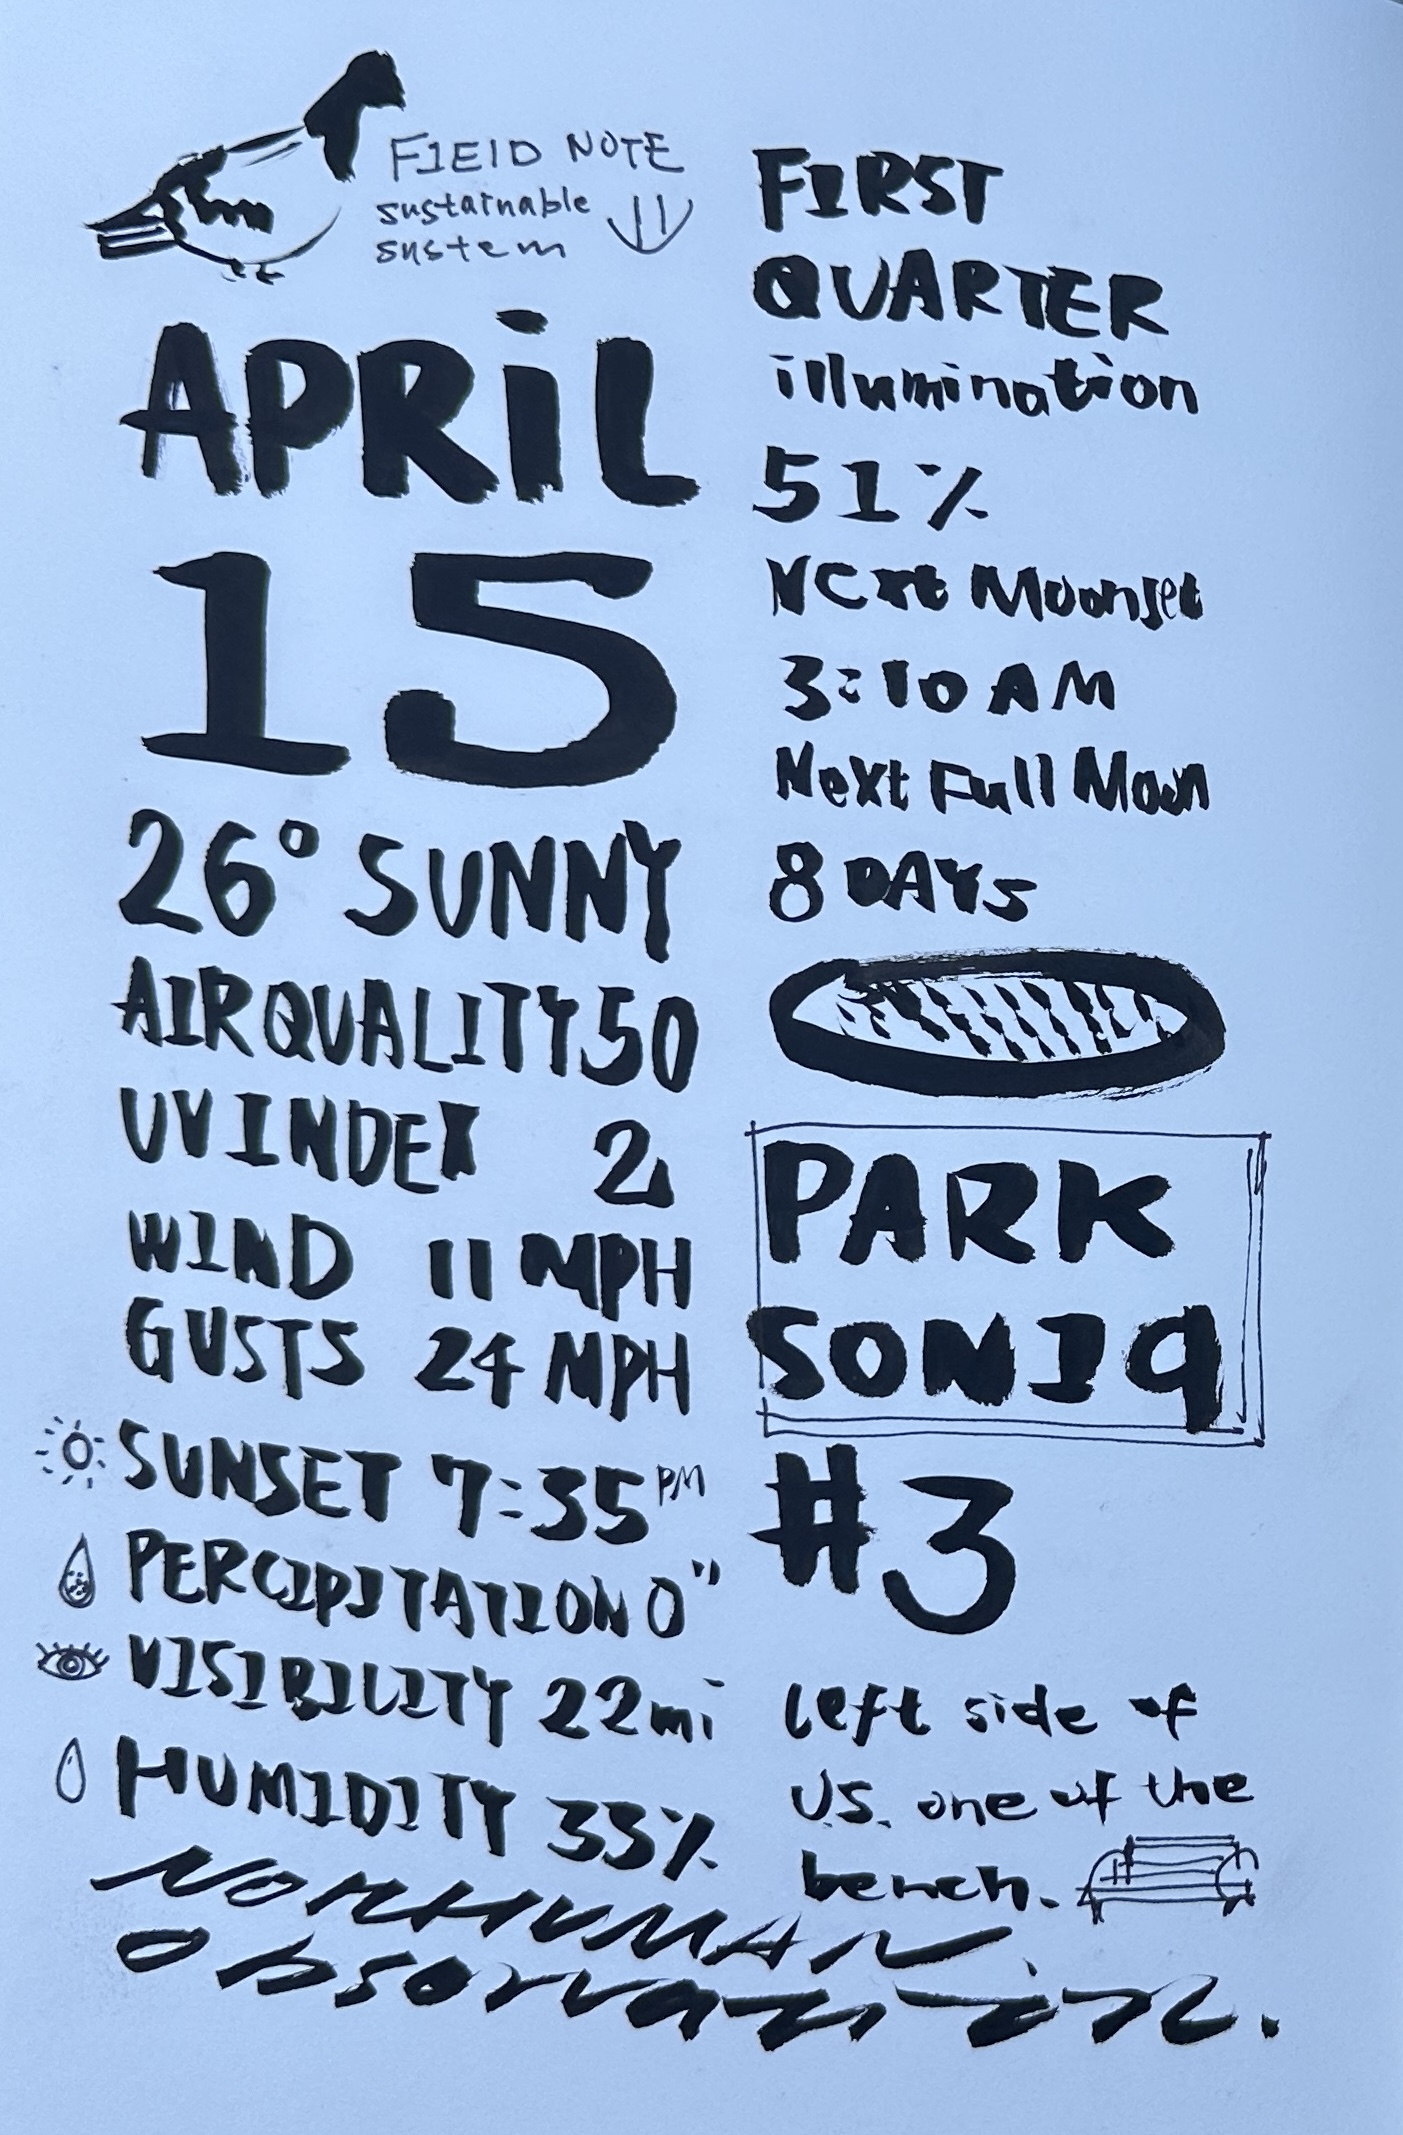 FIELD NOTE
sustainable
system
APRiL
15
26° SUNNY
AIR QUALITY 50
UV INDEX 2
WIND 11 MPH
GUSTS 24 MPH
SUNSET 7:35 PM
PERCIPITATION 0"
VISIBILITY 22mi
HUMIDITY 33%
FIRST
QUARTER
illumination
51%
NCxt Moonset
3:10 AM
Next Full Moon
8 DAYS
PARK
SONIq
#3
left side of
U.S. one of the
bench.
NONHUMAN
Observation.